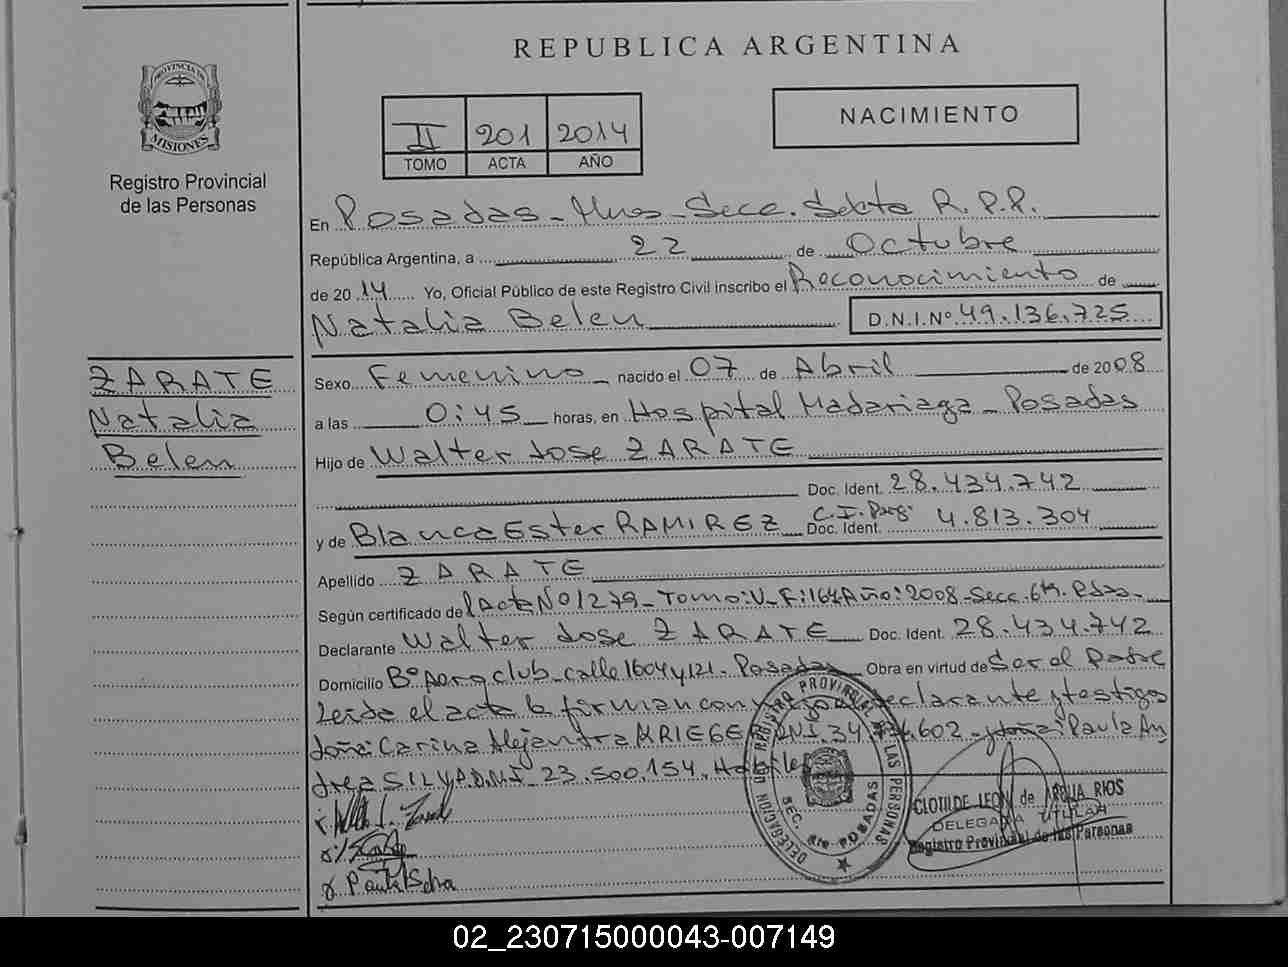 REPUBLICA ARGENTINA
PROVINCIA DE
MISIONES
Registro Provincial
de las Personas
II 201 2014
TOMO ACTA AÑO
NACIMIENTO
En Posadas - Mnes - Secc. Sexta R.P.P.
República Argentina, a 22 de Octubre
de 2014 Yo, Oficial Público de este Registro Civil inscribo el Reconocimiento de
Natalia Belen D.N.I.Nº 49.136.725
ZARATE
Natalia
Belen
Sexo Femenino nacido el 07 de Abril de 2008
a las 0:45 horas, en Hospital Madariaga - Posadas
Hijo de Walter Jose ZARATE
Doc. Ident. 28.434.742
y de Blanca Ester RAMIREZ C.I. Parg. Doc. Ident. 4.813.304
Apellido ZARATE
Según certificado del Acta Nº 1279 - Tomo: V - F: 164 Año: 2008 - Secc. 6ta. Pdas -
Declarante Walter Jose ZARATE Doc. Ident. 28.434.742
Domicilio Bº Aeroclub - calle 160 y 121 - Posadas Obra en virtud de Ser el Padre
Leida el acta la firman con el declarante y testigos
doña: Carina Alejandra KRIEGER DNI. 602 - y doña: Paula An
drea SILVA D.N.I. 23.500.154. Habiles
DELEGACION DEL REGISTRO PROVINCIAL DE LAS PERSONAS
SEC. 6ta POSADAS
CLOTILDE LEON de RIOS
DELEGADA TITULAR
Registro Provincial de las Personas
02_230715000043-007149